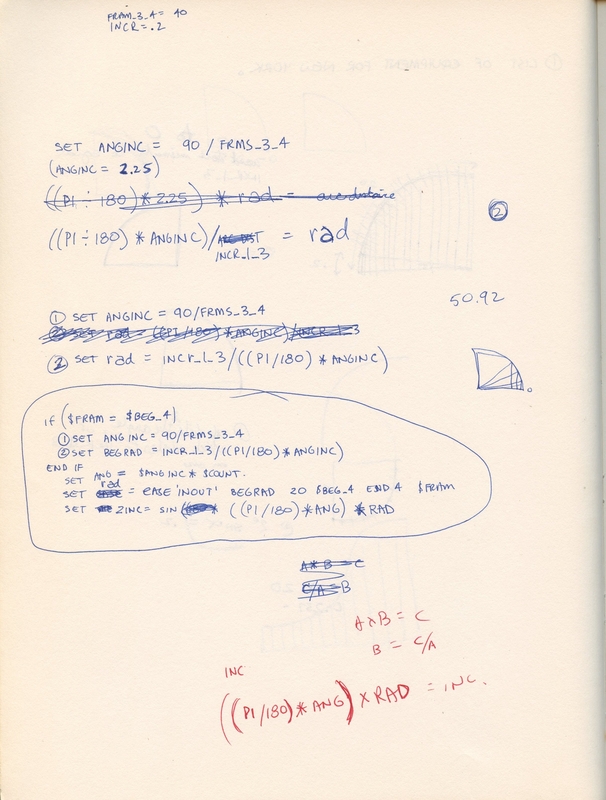 FRAM_3_4 = 40
INCR = .2
SET ANGINC = 90 / FRMS_3_4
(ANGINC = 2.25)
((PI ÷ 180) * 2.25) * rad = arcdistance
((PI ÷ 180) * ANGINC) / ARC DIST = rad
INCR_1_3
②
50.92
① SET ANGINC = 90/FRMS_3_4
② SET rad = ((PI/180) * ANGINC) / INCR_1_3
② SET rad = INCR_1_3/((PI/180) * ANGINC)
if ($FRAM = $BEG_4)
① SET ANGINC = 90/FRMS_3_4
② SET BEGRAD = INCR_1_3/((PI/180) * ANGINC)
END IF
SET ANG = $ANGINC * $COUNT.
SET rad = EASE 'INOUT' BEGRAD 20 $BEG_4 END4 $FRAM
SET ZINC = SIN ((PI/180) * ANG) * RAD
A * B = C
C/A = B
A × B = C
B = C/A
INC
((PI/180) * ANG) × RAD = INC.